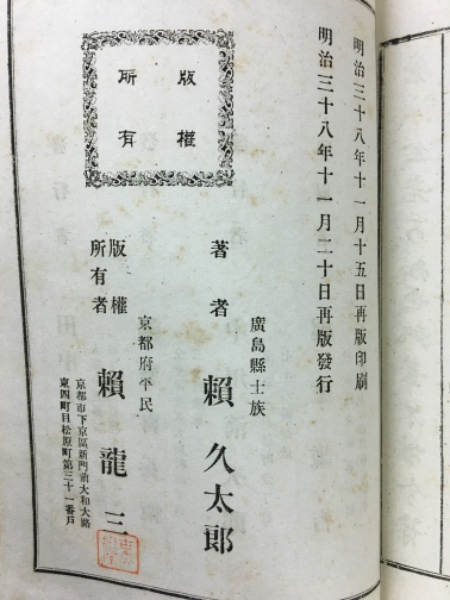 明治三十八年十一月十五日再版印刷
明治三十八年十一月二十日再版發行
版權
所有
廣島縣士族
著者 賴久太郎
京都府平民
版權
所有者 賴龍三
京都市下京區新門前大和大路
東四町目松原町第三十一番戶